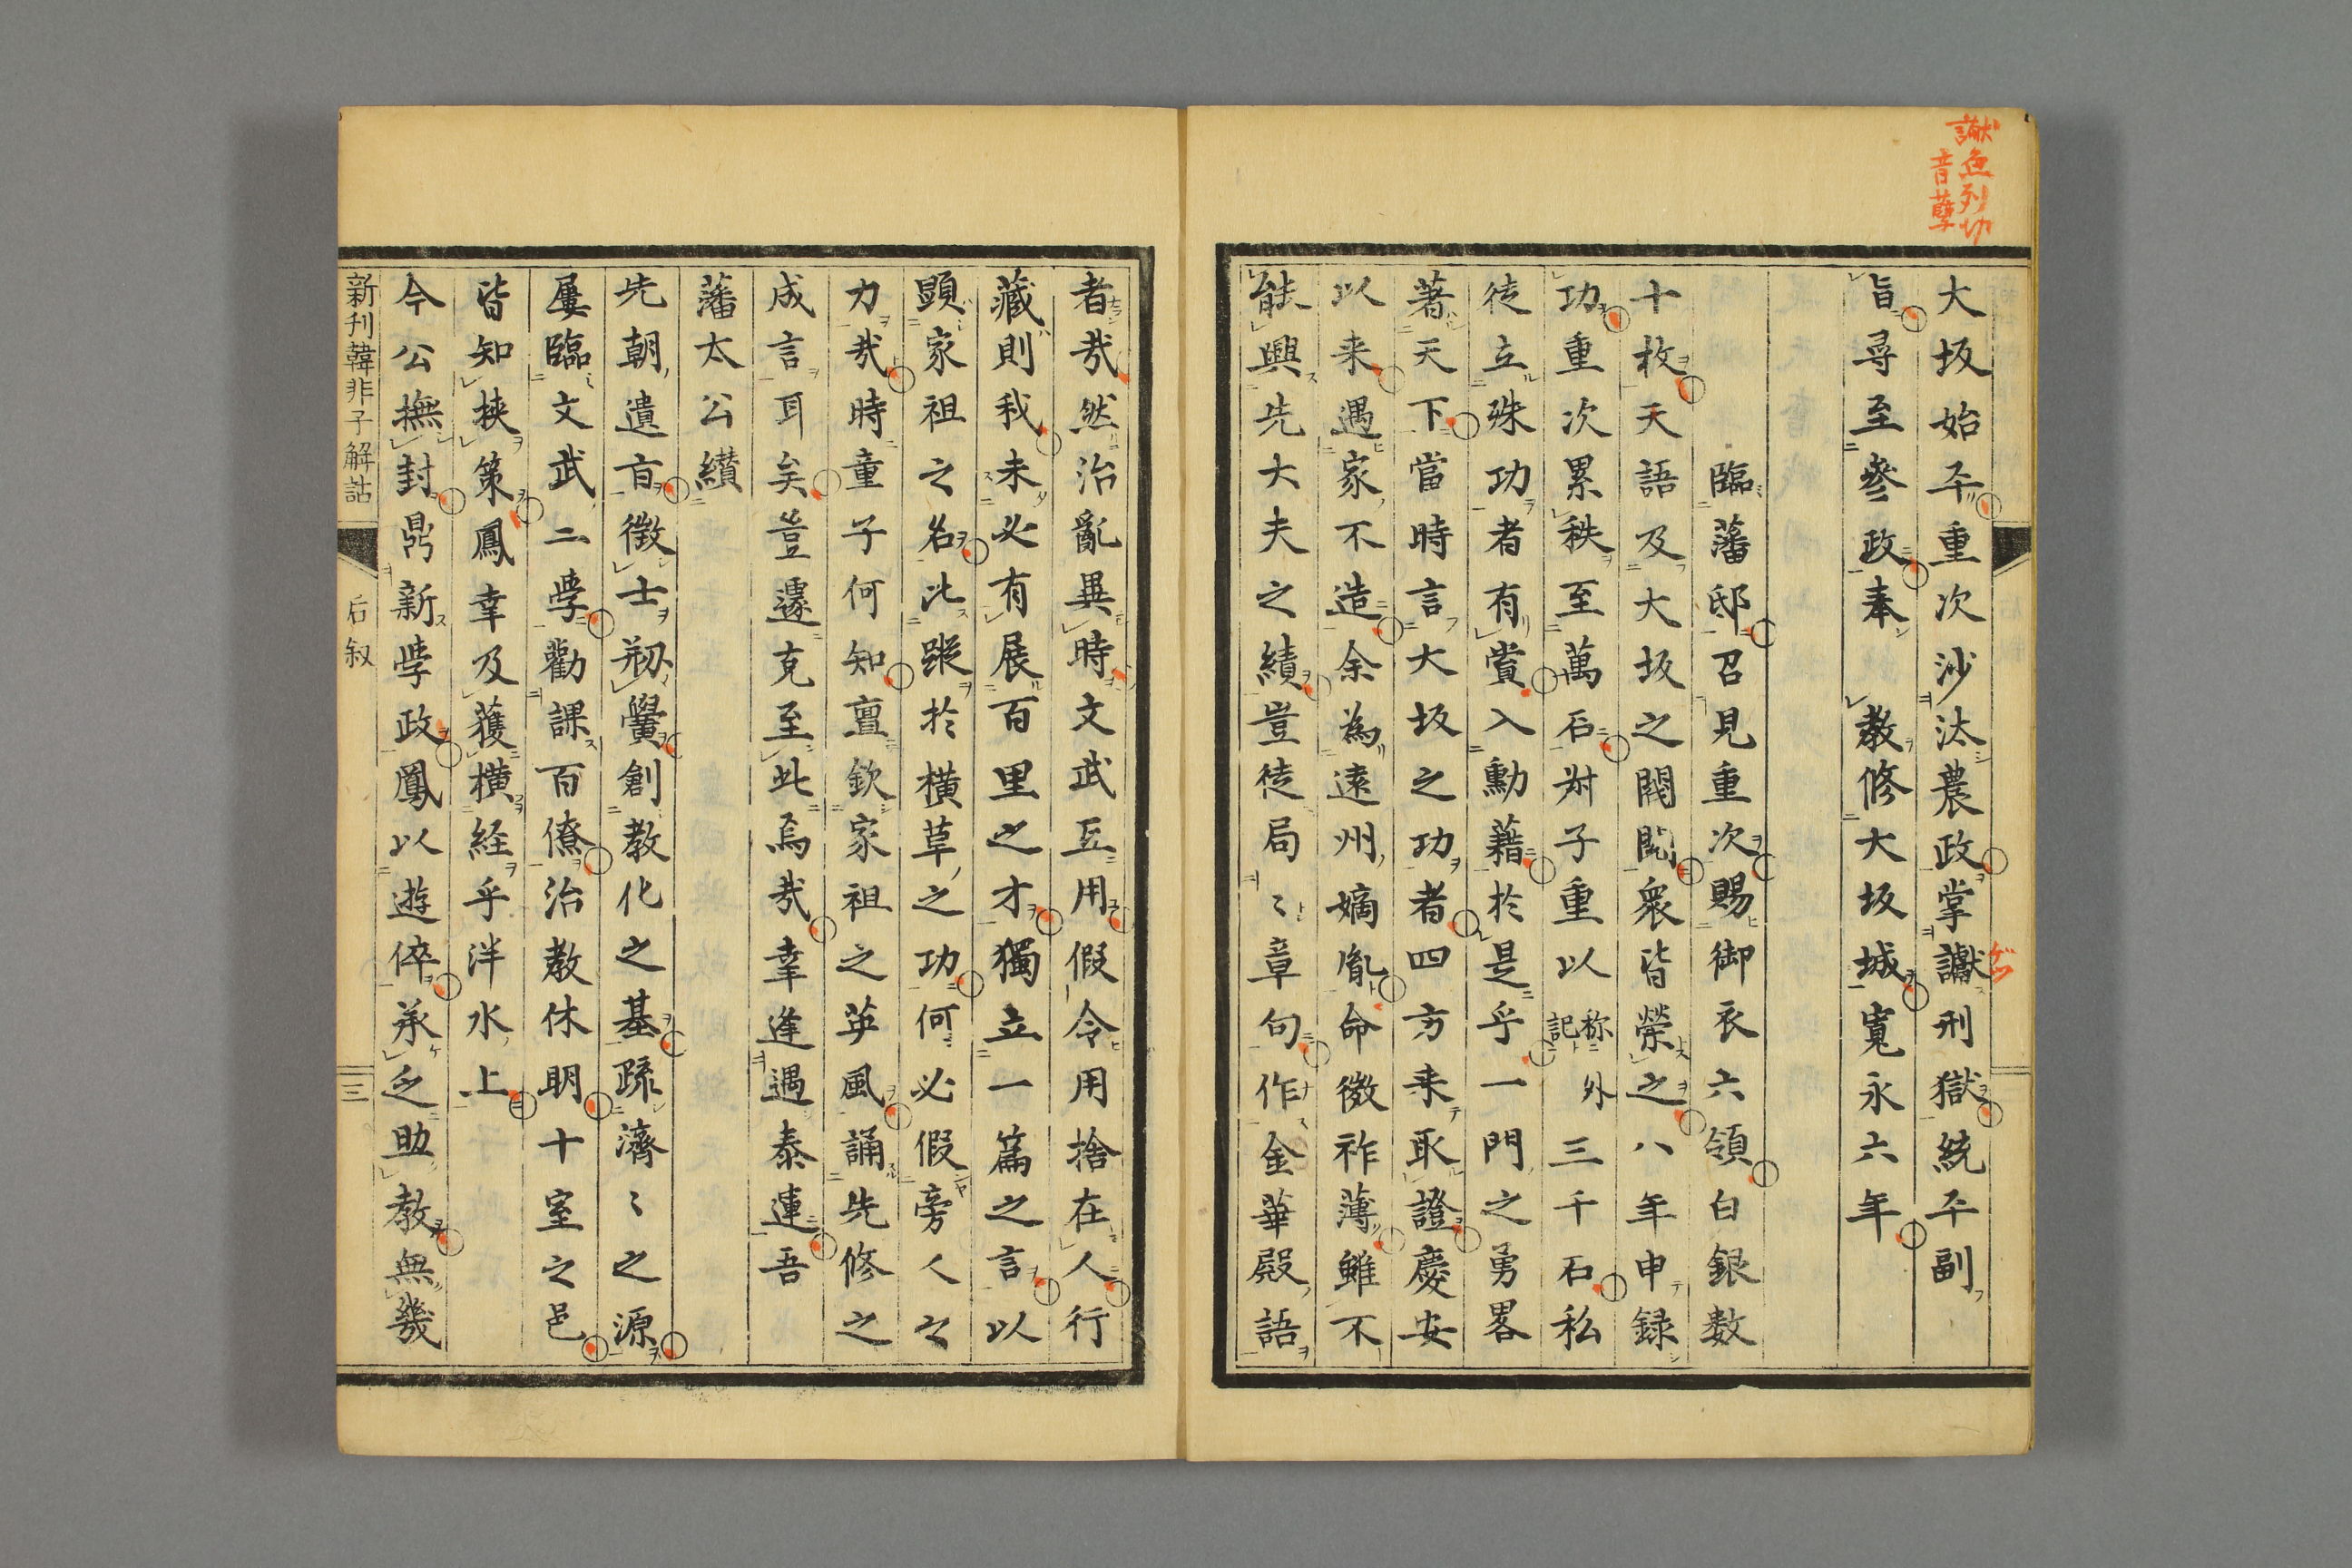 讞魚列切
音孽
大坂始平重次沙汰農政掌讞刑獄統平副
旨尋至參政奉 教修大坂城寬永六年
臨藩邸召見重次賜御衣六領白銀数
十枚天語及大坂之閥閲衆皆榮之八年申録
功重次累秩至萬石対子重以称記外三千石私
徒立殊功者有賞入勳藉於是乎一門之勇畧
著天下當時言大坂之功者四方来取證慶安
以来遇家不造余為遠州嫡胤命微祚薄雖不
能興先大夫之績豈徒局〻章句作金華殿語
者㢤然治亂異時文武互用假令用捨在人行
藏則我未必有展百里之才獨立一篇之言以
顕家祖之名比蹤於橫草之功何必假旁人之
力㢤時童子何知亶欽家祖之英風誦先修之
成言耳矣豈遽克至此焉㢤幸逢遇泰運吾
藩太公纉
先朝遺㫖徴士剏黌創教化之基疏濟〻之源
屢臨文武二学勸課百僚治教休明十室之邑
皆知挾策鳳幸及獲橫経乎泮水上
今公撫封鼎新学政鳳以遊倅承乏助教無幾
新刊韓非子解詁 后叙 三